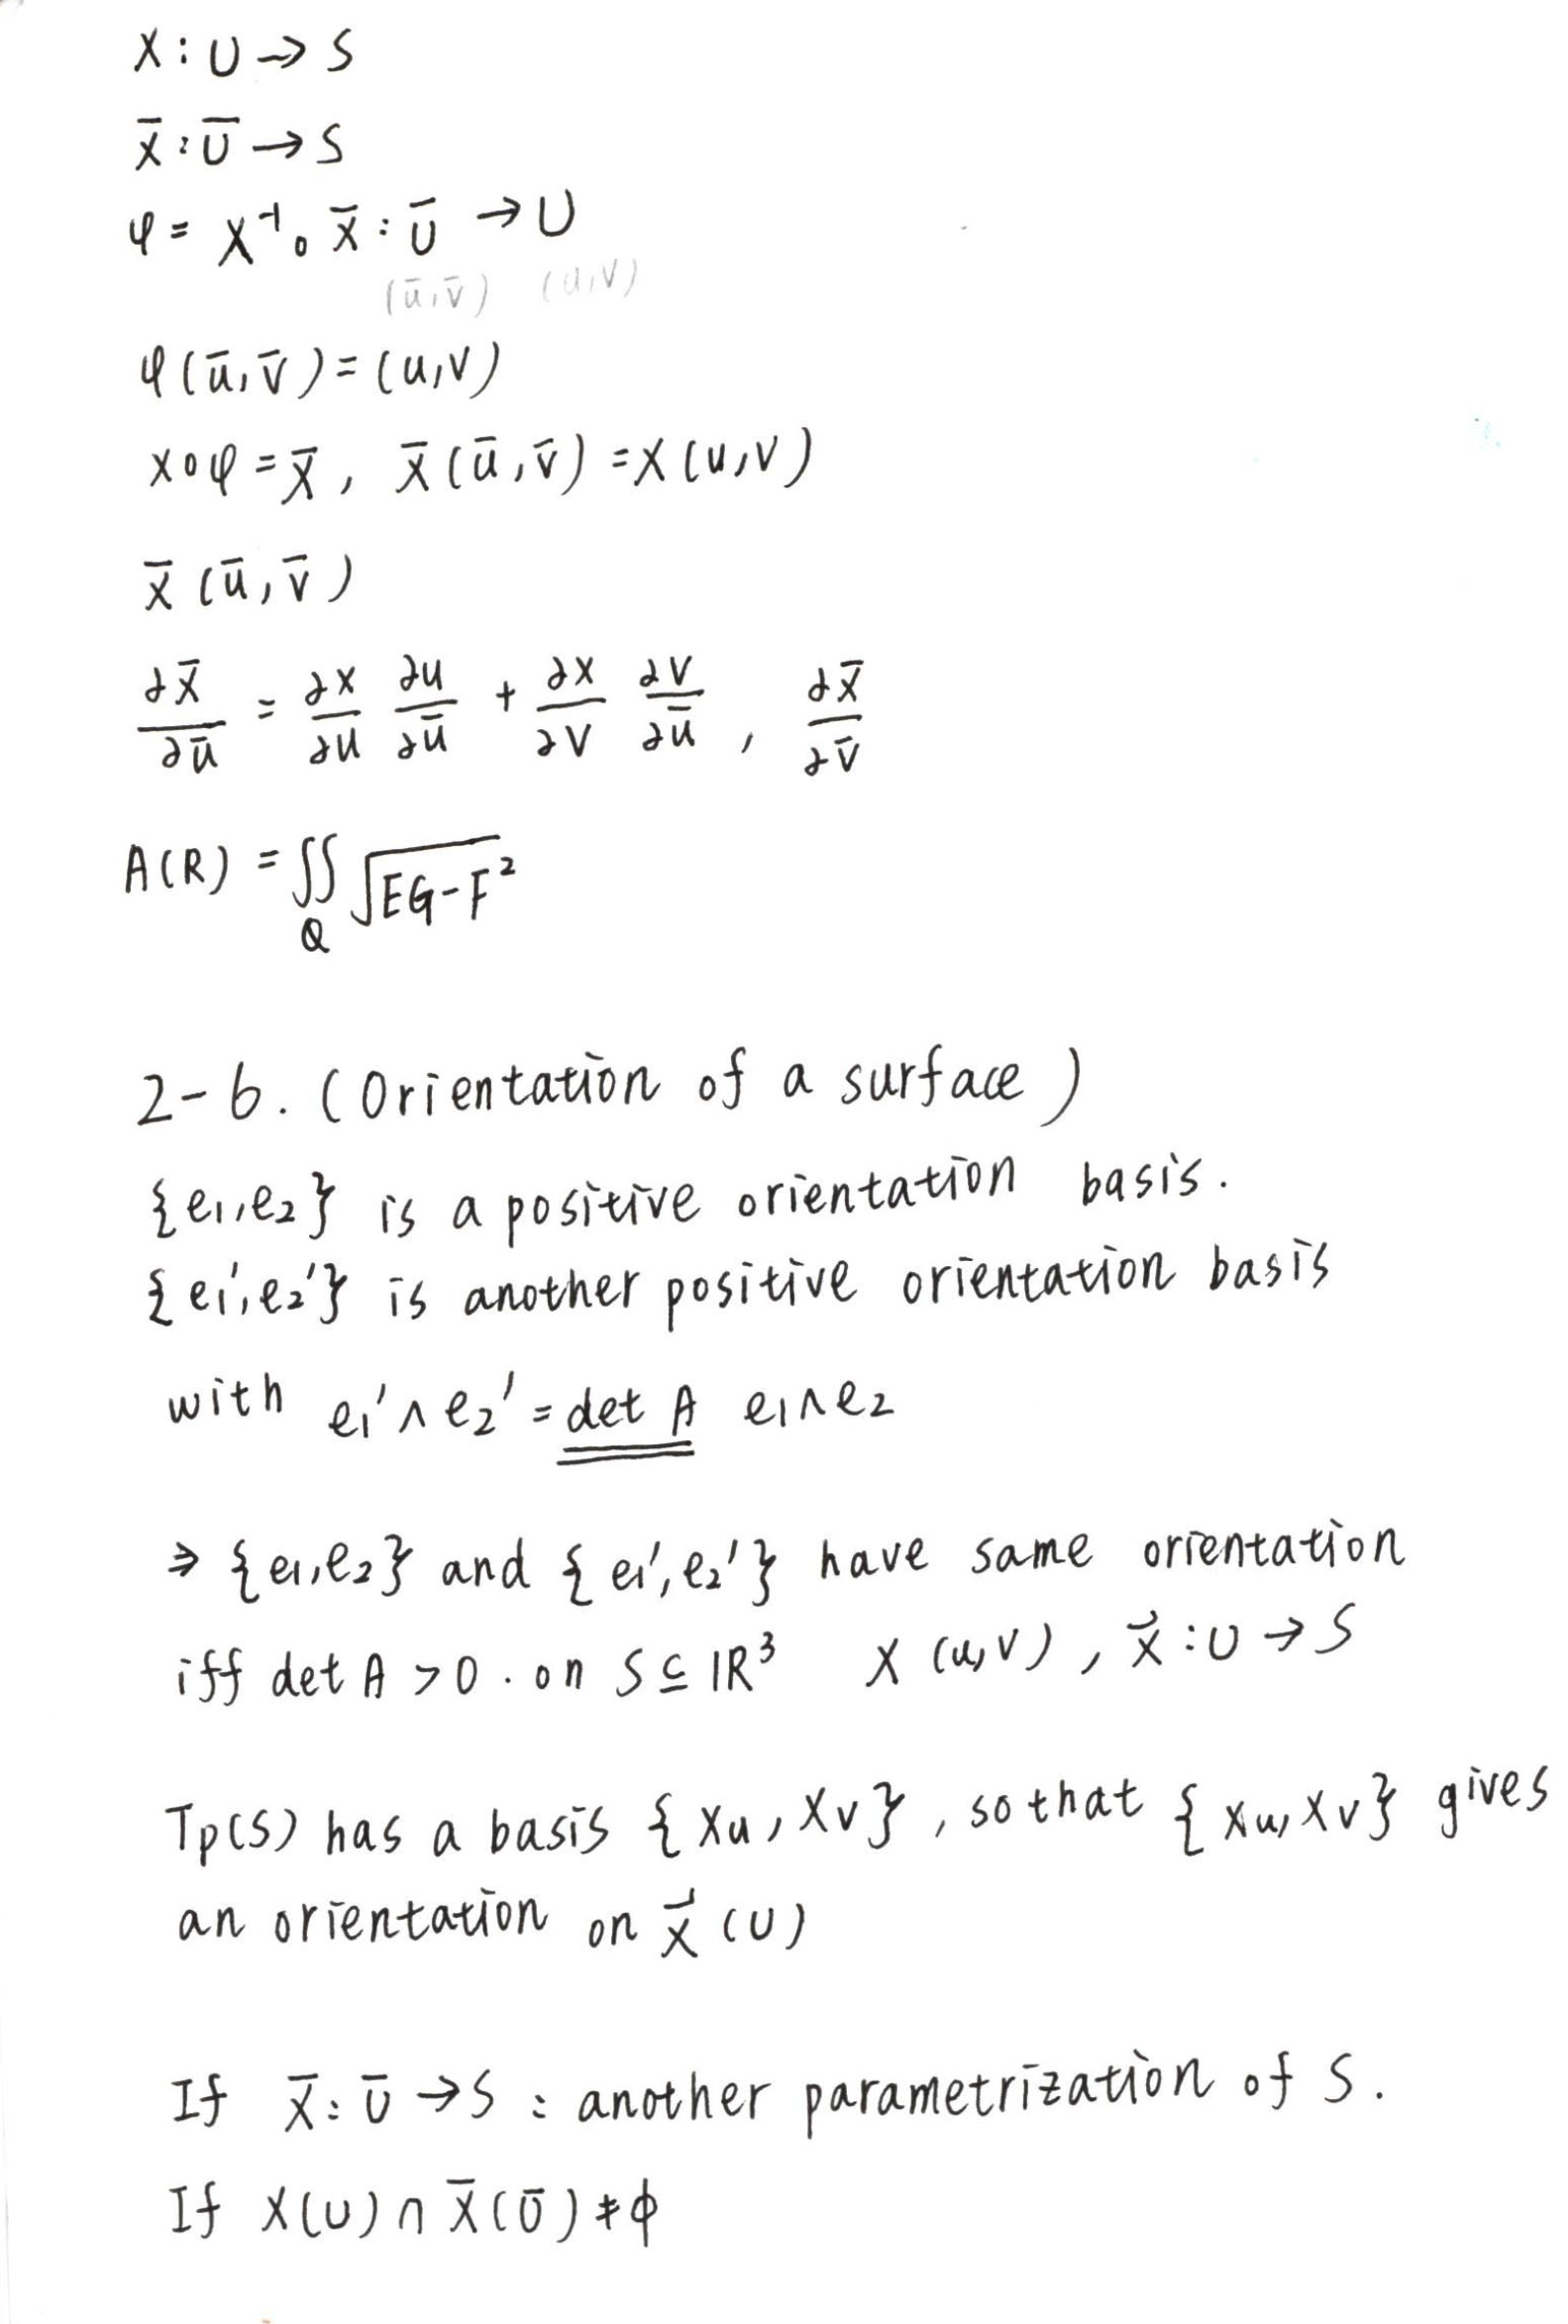 X : U → S
X̄ : Ū → S
φ = X⁻¹ ∘ X̄ : Ū → U
(ū, v̄) (u, v)
φ(ū, v̄) = (u, v)
X∘φ = X̄, X̄(ū, v̄) = X(u, v)
X̄(ū, v̄)
∂X̄/∂ū = ∂X/∂u ∂u/∂ū + ∂X/∂v ∂v/∂ū , ∂X̄/∂v̄
A(R) = ∬_Q √(EG-F²)
2-6. (Orientation of a surface)
{e₁, e₂} is a positive orientation basis.
{e₁', e₂'} is another positive orientation basis
with e₁' ∧ e₂' = det A e₁ ∧ e₂
⇒ {e₁, e₂} and {e₁', e₂'} have same orientation
iff det A > 0 . on S ⊆ ℝ³ X(u, v), x⃗ : U → S
Tp(S) has a basis {Xu, Xv}, so that {Xu, Xv} gives
an orientation on x⃗(U)
If X̄ : Ū → S : another parametrization of S.
If X(U) ∩ X̄(Ū) ≠ ϕ